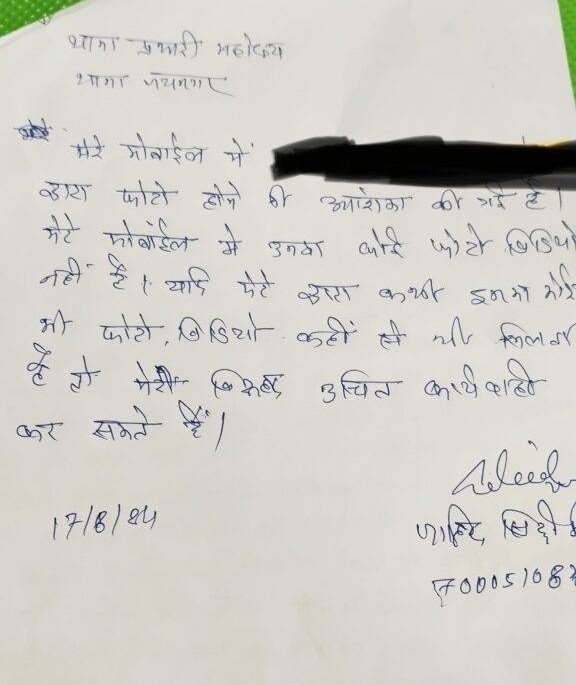 थाना प्रभारी महोदय
थाना जयनगर
मेरे मोबाईल में
द्वारा फोटो होने की आशंका की गई है।
मेरे मोबाईल मे उनका कोई फोटो विडियो
नहीं है। यदि मेरे द्वारा कभी इनका कोई
भी फोटो, विडियो कहीं से भी मिलता
है तो मेरे विरूद्ध उचित कार्यवाही
कर सकते हैं।
17/8/24